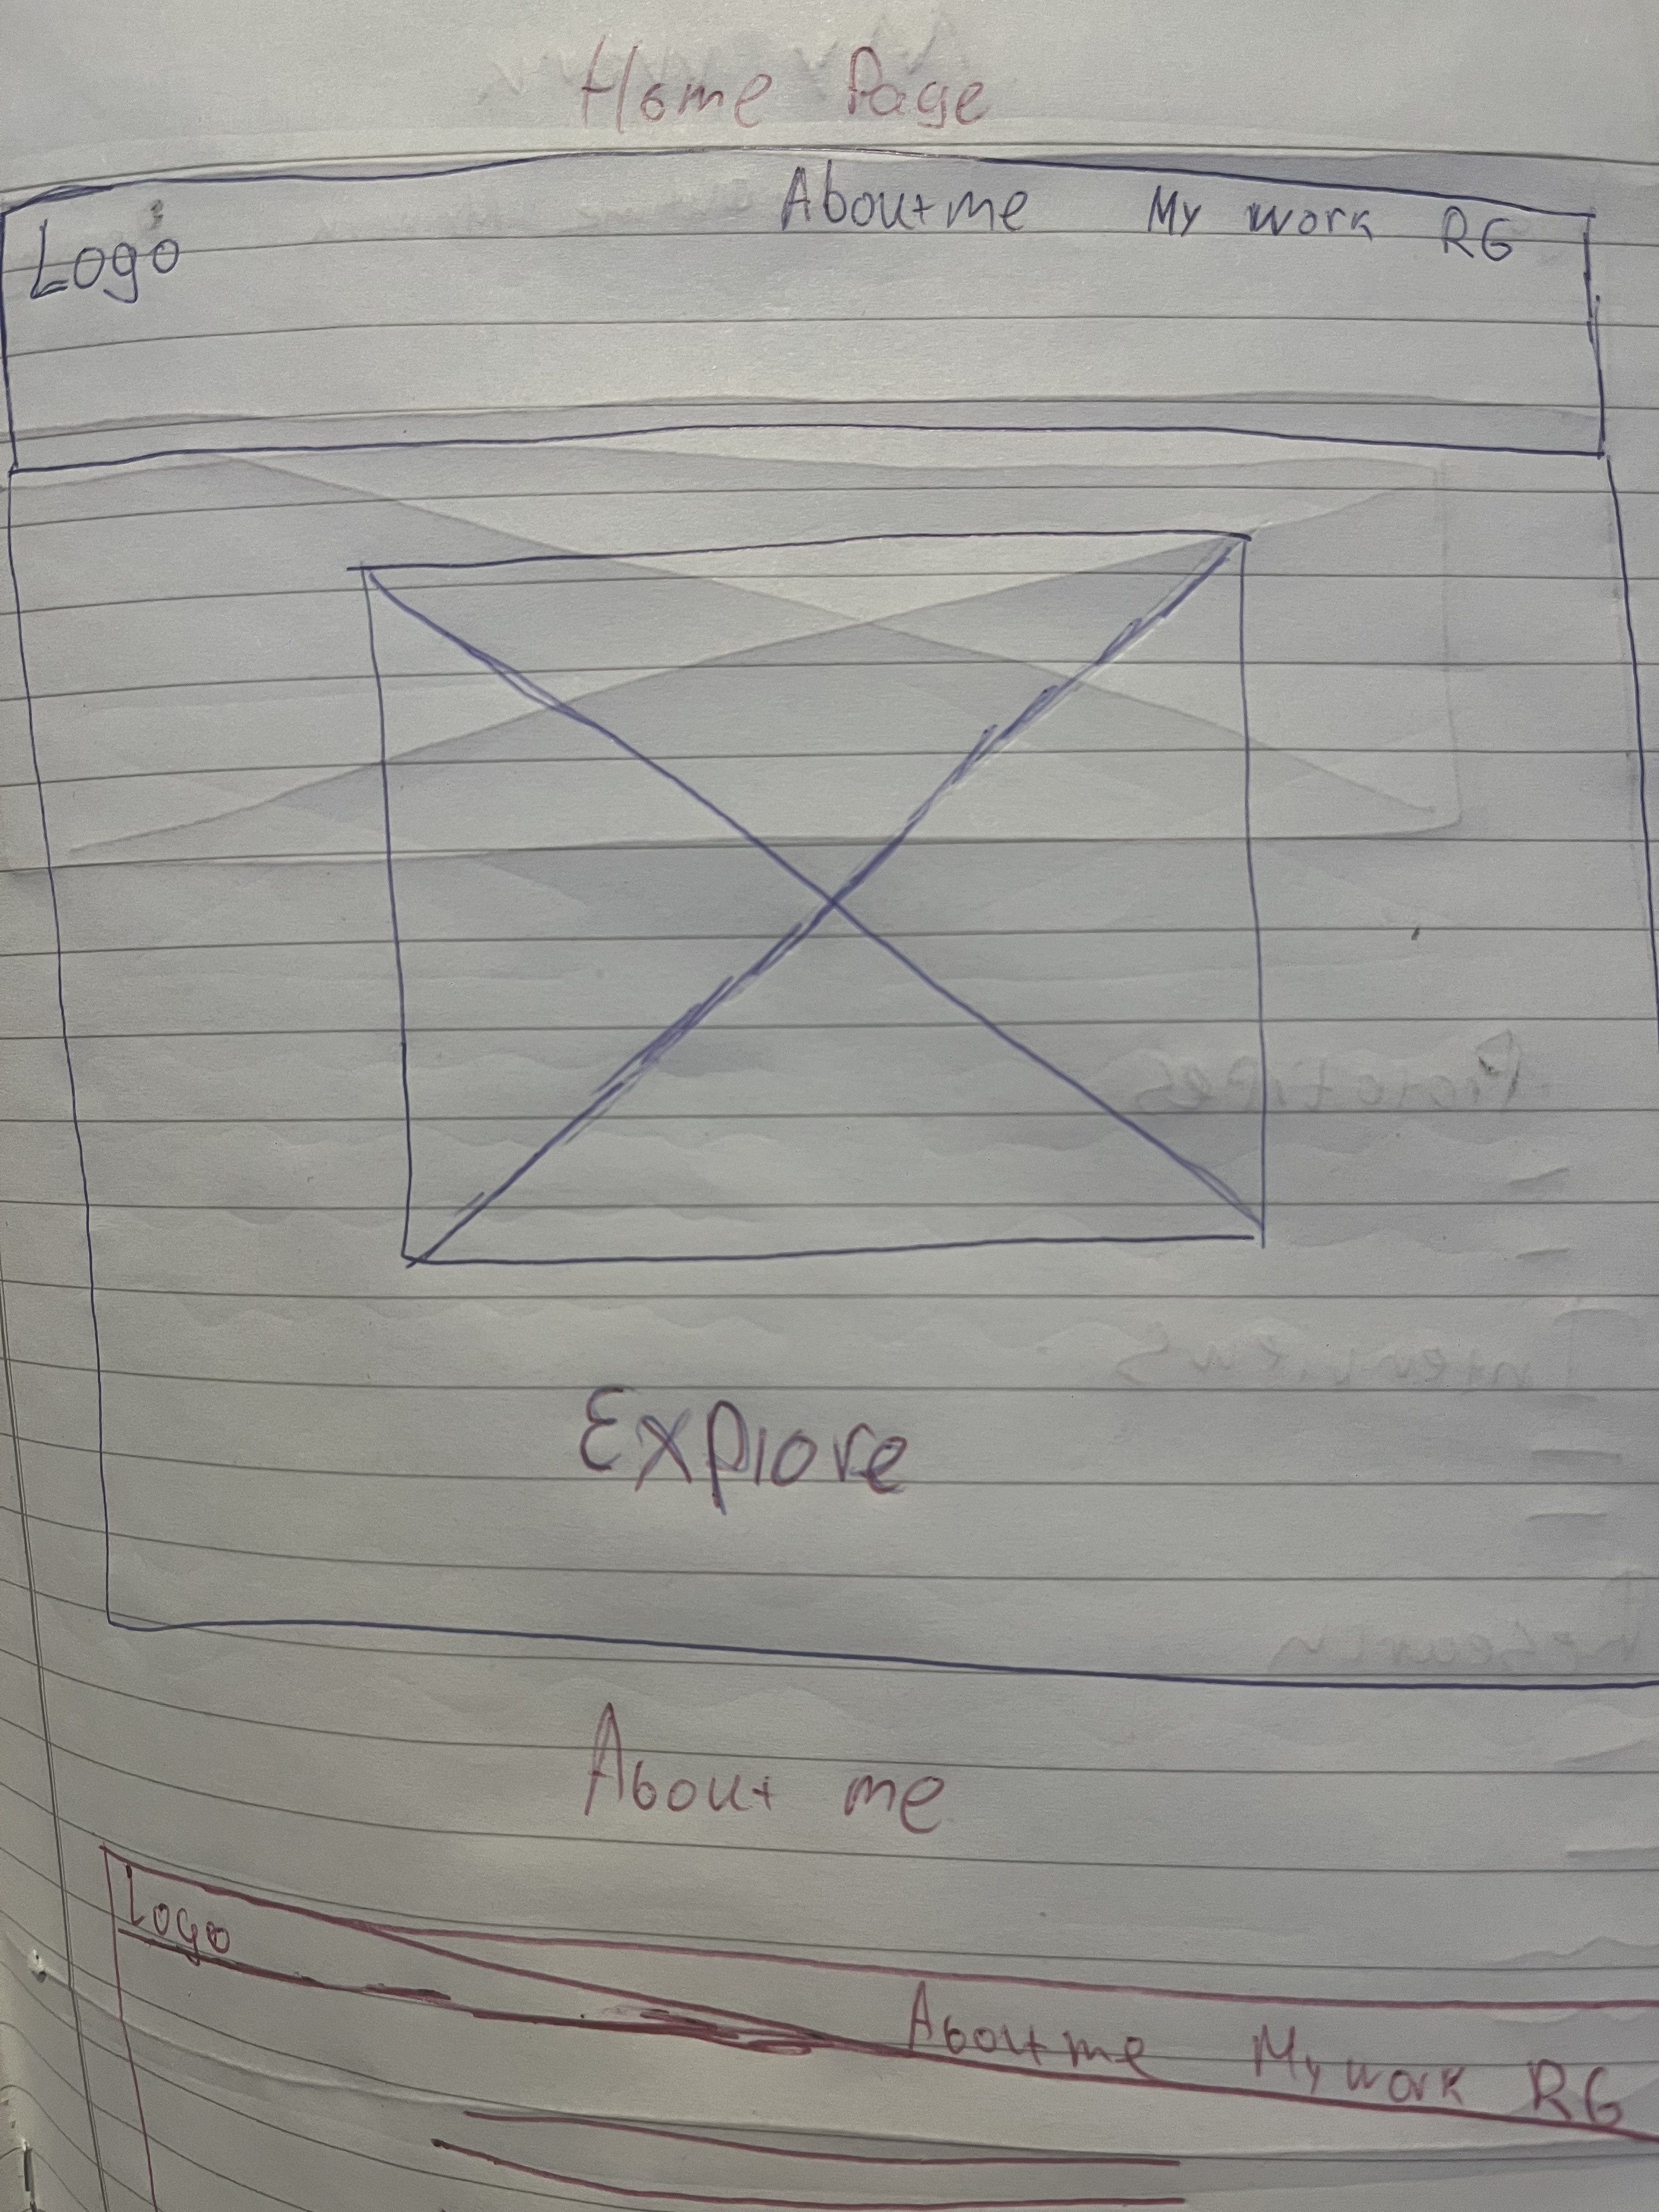 Home Page
Logo About me My work RG
Explore
About me
Logo
About me My work RG